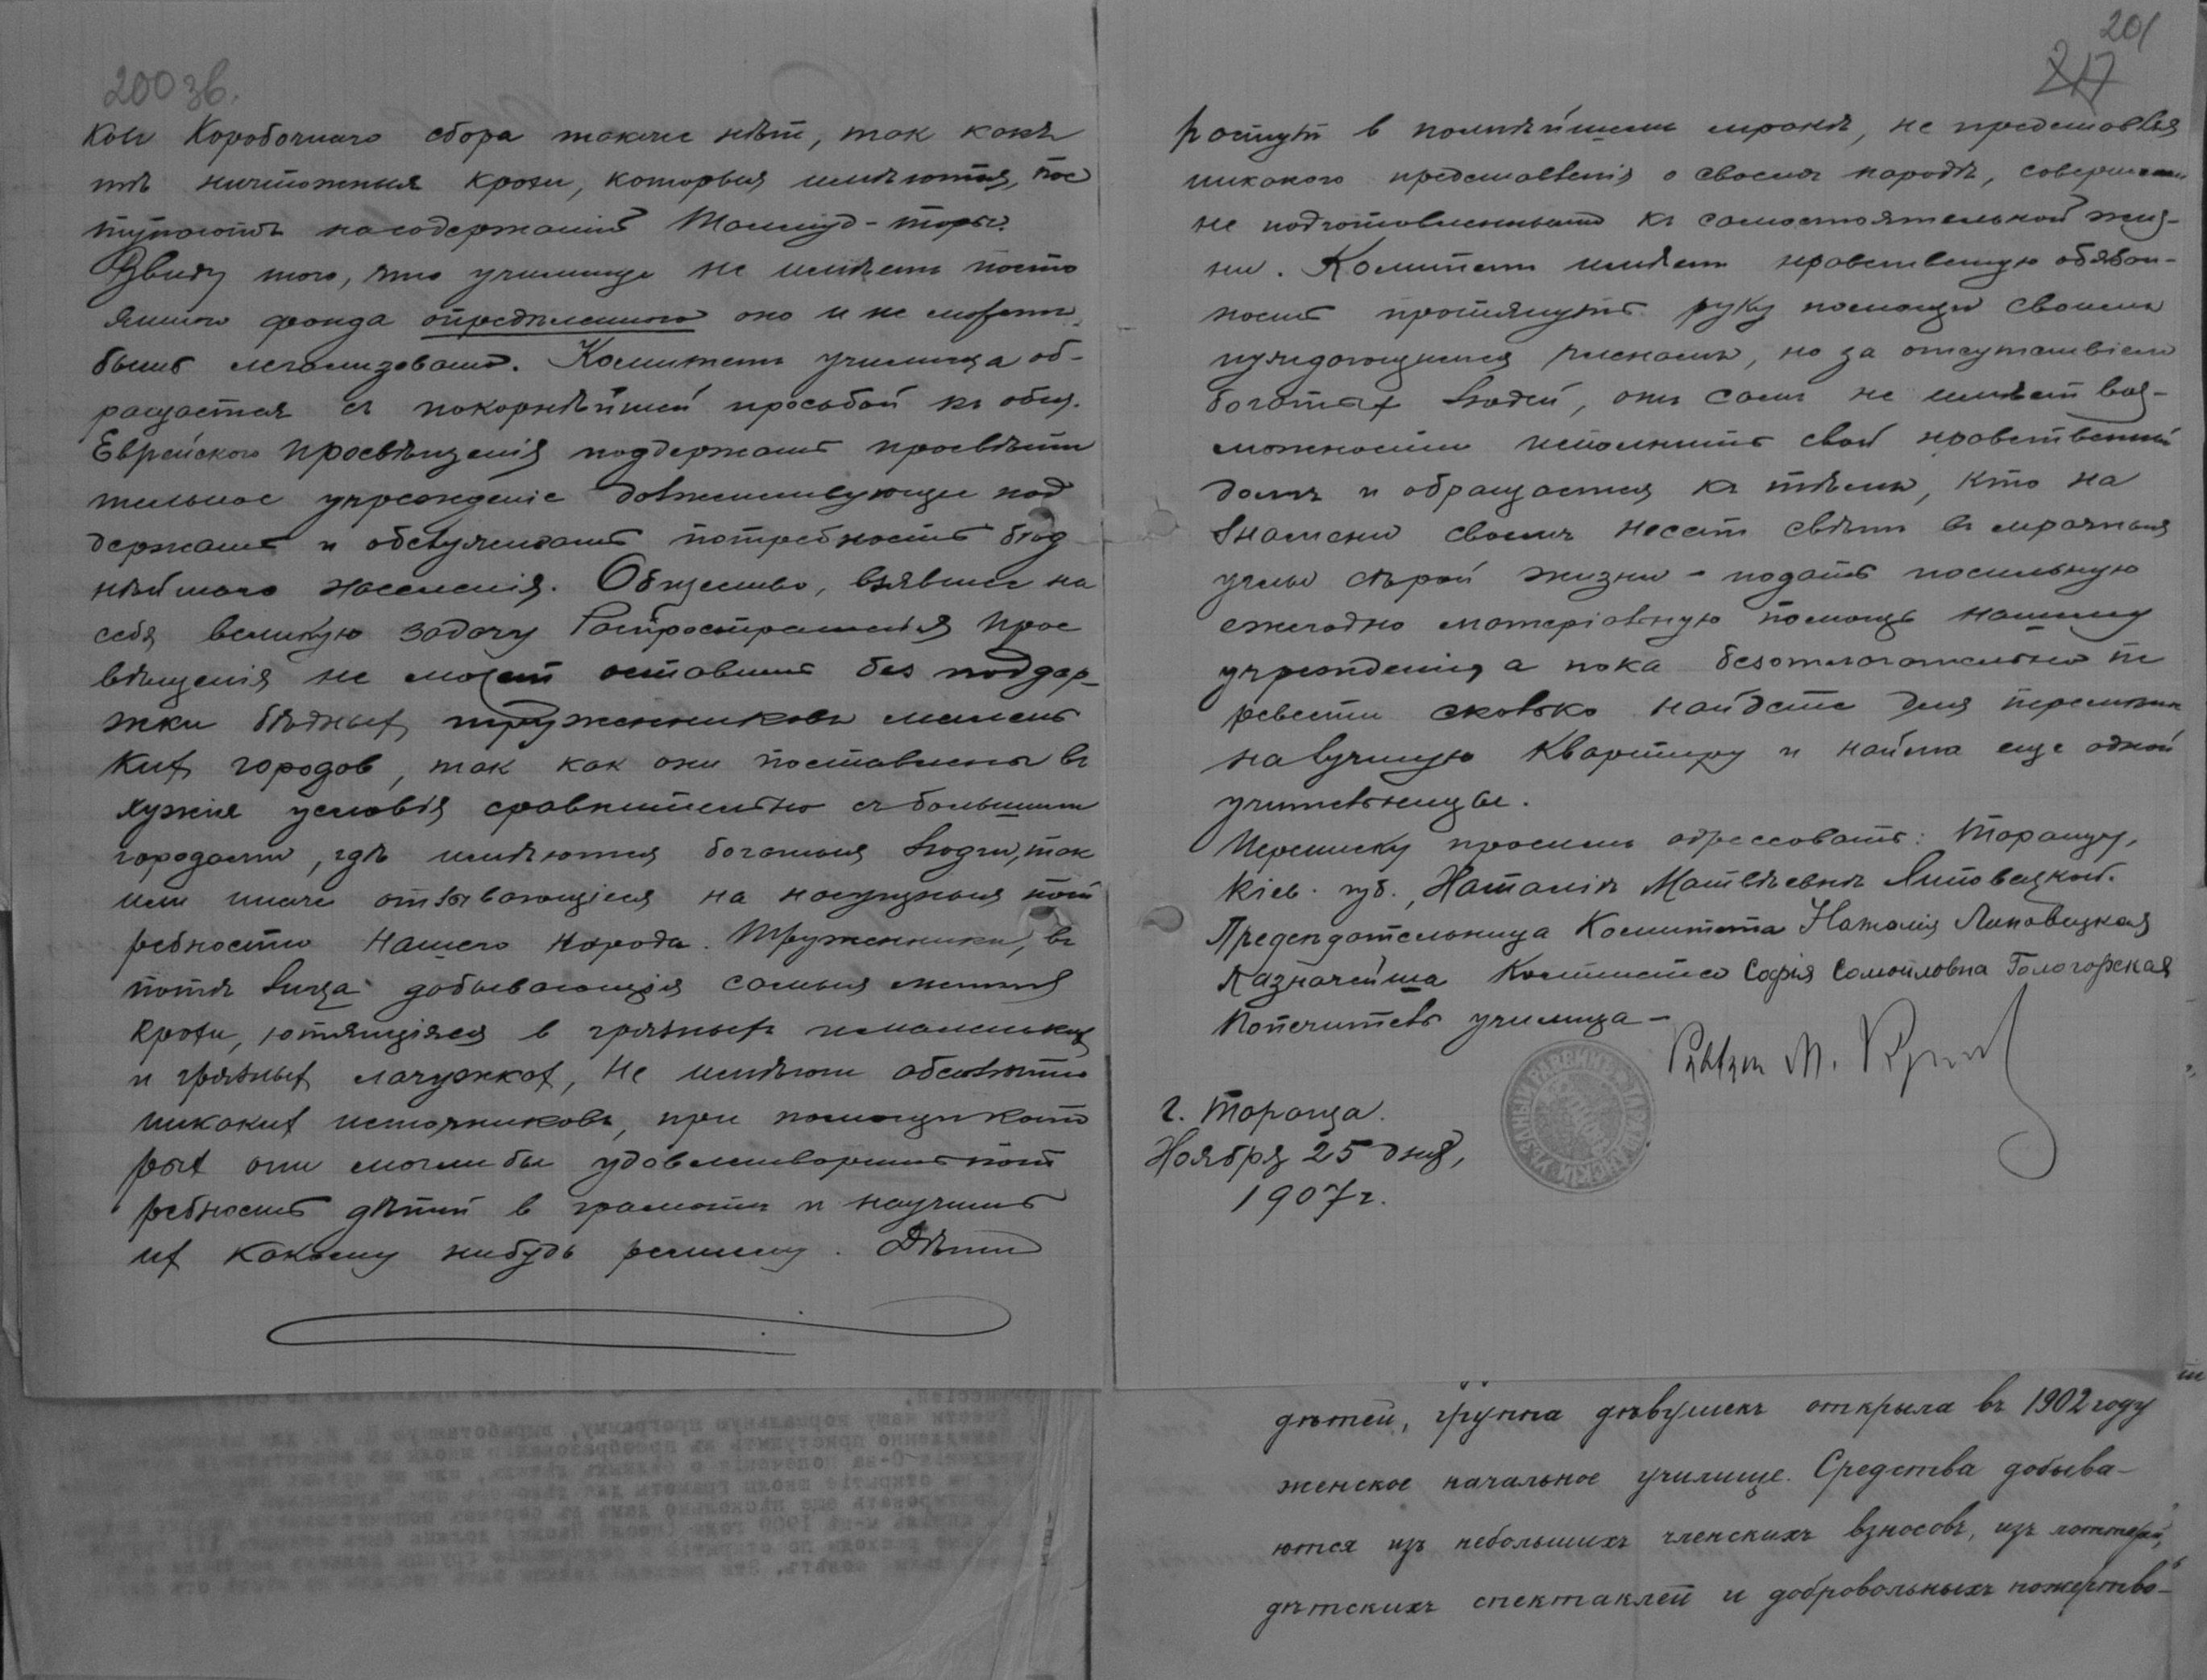 200 зв.
ков Коробочнаго сбора также нѣт, так какъ
тѣ ничтожныя крохи, которыя имѣются, пос
тупаютъ на содержаніе Талмуд-торы.
Ввиду того, что училище не имѣетъ посто
яннаго фонда опредѣленнаго оно и не можетъ
быть легализовано. Комитетъ училища об-
ращается съ покорнѣйшей просьбой къ общ.
Еврейскаго просвѣщенія поддержать просвѣти
тельное учрежденіе долженствующее под
держать и обслуживать потребность бѣд
нѣйшаго населенія. Общество, взявшее на
себя великую задачу Распространенія прос
вѣщенія не может оставить без поддер-
жки бѣдных тружениковъ малень
ких городов, так как они поставлены въ
хужія условія сравнительно съ большими
городами, гдѣ имѣются богатыя люди, так
или иначе отзывающіеся на насущныя пот
ребности нашего народа. Труженники, въ
потѣ лица добывающія самыя мелкія
крохи, ютящіяся в грязных
и грязных лачужках, не имѣют абсолютно
никаких источниковъ, при помощи кото
рых они могли бы удовлетворить пот
ребность дѣтей в грамотѣ и научить
их какому нибудь ремеслу. Дѣти
201
217
растут в полнѣйшемъ мракѣ, не представляя
никакого представленія о своемъ народѣ, совершенно
не подготовленными къ самостоятельной жиз-
ни. Комитетъ имѣетъ нравственную обязан-
ность протянуть руку помощи своимъ
нуждающимся членамъ, но за отсутствіем
богатых людей, онъ самъ не имѣет воз-
можности исполнить свой нравственный
долгъ и обращается къ тѣмъ, кто на
знамени своемъ несет свѣтъ въ мрачныя
углы сѣрой жизни - подать посильную
ежегодно матеріальную помощь нашему
учрежденію, а пока безотлагательно пе
ревести сколько найдете для перемѣны
на лучшую квартиру и найма еще одной
учительницы.
Переписку просимъ адрессовать: Тараща,
Кіев. губ., Наталіѣ Матвѣевнѣ Липовецкой.
Предсѣдательница Комитета Наталія Липовецкая
Казначейша Комитета Софія Самойловна Гологорская
Попечитель училища -
г. Тараща.
Ноября 25 дня,
1907 г.
дѣтей, группа дѣвушекъ открыла въ 1902 году
женское начальное училище. Средства добыва-
ются изъ небольшихъ членскихъ взносовъ, изъ лоттерей,
дѣтскихъ спектаклей и добровольныхъ пожертво-